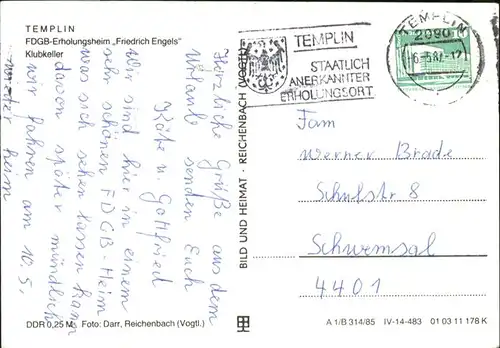 TEMPLIN
FDGB-Erholungsheim „Friedrich Engels"
Klubkeller
Herzliche Grüße aus dem
Urlaub senden Euch
Käte u. Gottfried
Wir sind hier in einem
sehr schönen FDGB-Heim
was sich sehen lassen kann
davon später mündlich
wir fahren am 10.5.
wieder heim
DDR 0,25 M  Foto: Darr, Reichenbach (Vogtl.)
BILD UND HEIMAT · REICHENBACH (VOGTL)
TEMPLIN
STAATLICH
ANERKANNTER
ERHOLUNGSORT
TEMPLIN
2090
Fam
Werner Brade
Schulstr 8
Schwemsal
4401
A 1/B 314/85  IV-14-483  01 03 11 178 K